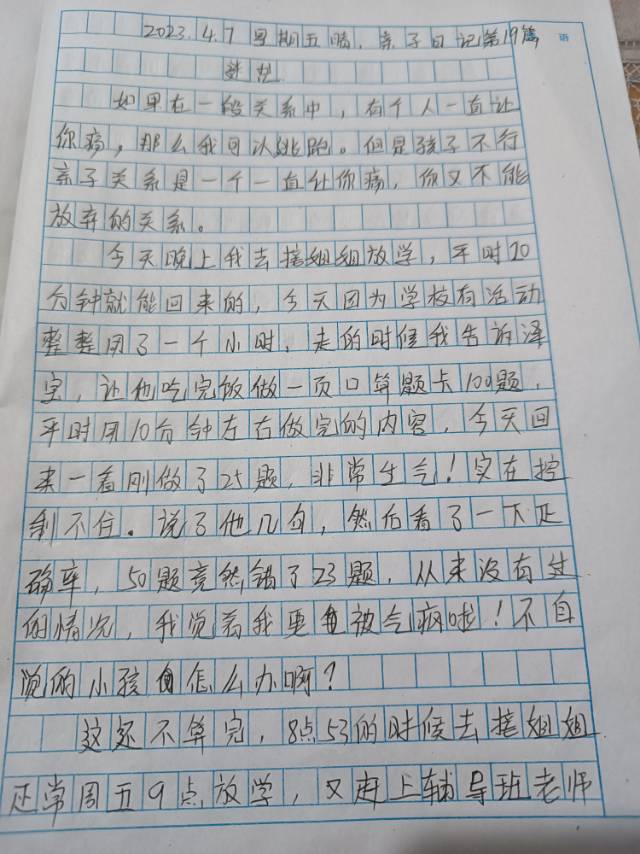 2023.4.7 星期五晴. 亲子日记第19篇
班
如果在一段关系中，有个人一直让
你痛，那么我可以逃跑。但是孩子不行
亲子关系是一个一直让你痛，你又不能
放弃的关系。
今天晚上我去接姐姐放学，平时20
分钟就能回来的，今天因为学校有活动
整整用了一个小时．走的时候我告诉泽
宝，让他吃完饭做一页口算题卡100题．
平时用10分钟左右做完的内容，今天回
来一看刚做了25题，非常生气！实在控
制不住。说了他几句，然后看了一下正
确率，50题竟然错了23题．从来没有过
的情况，我觉着我要被气疯啦！不自
觉的小孩怎么办啊？
这还不算完，8点53的时候去接姐姐
正常周五9点放学，又赶上辅导班老师